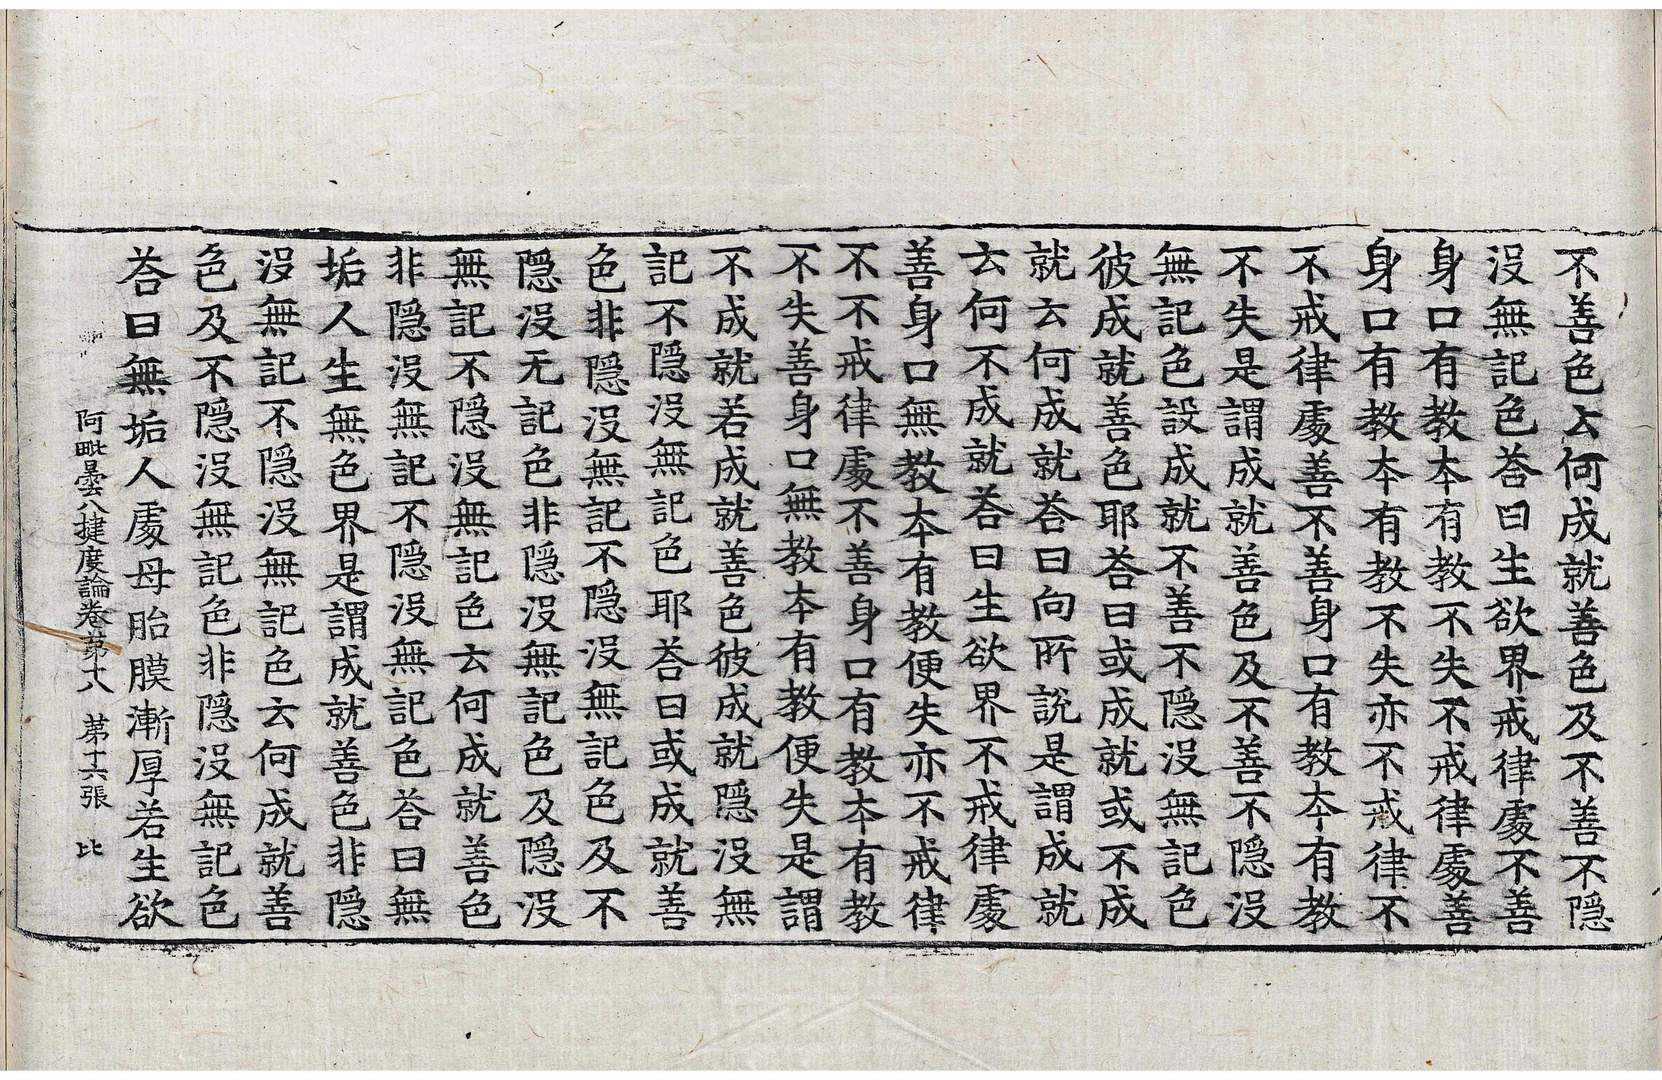 不善色云何成就善色及不善不隠
沒無記色荅曰生欲界戒律處不善
身口有教夲有教不失不戒律處善
身口有教夲有教不失亦不戒律不
不戒律處善不善身口有教夲有教
不失是謂成就善色及不善不隠沒
無記色設成就不善不隠沒無記色
彼成就善色耶荅曰或成就或不成
就云何成就荅曰向所說是謂成就
云何不成就荅曰生欲界不戒律處
善身口無教夲有教便失亦不戒律
不不戒律處不善身口有教夲有教
不失善身口無教夲有教便失是謂
不成就若成就善色彼成就隠沒無
記不隠沒無記色耶荅曰或成就善
色非隠沒無記不隠沒無記色及不
隠沒无記色非隠沒無記色及隠沒
無記不隠沒無記色云何成就善色
非隠沒無記不隠沒無記色荅曰無
垢人生無色界是謂成就善色非隠
沒無記不隠沒無記色云何成就善
色及不隠沒無記色非隠沒無記色
荅曰無垢人處母胎膜漸厚若生欲
阿毗曇八揵度論卷第十八 苐十六張 比